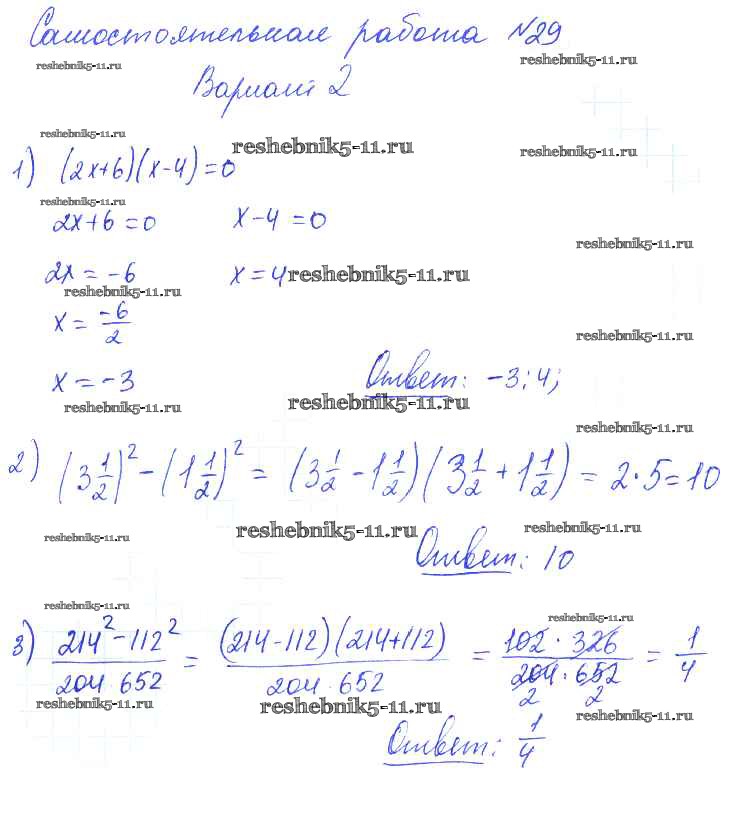 Самостоятельная работа №29
reshebnik5-11.ru reshebnik5-11.ru
Вариант 2
reshebnik5-11.ru reshebnik5-11.ru reshebnik5-11.ru
1) (2x+6)(x-4)=0
reshebnik5-11.ru
2x+6=0 x-4=0
reshebnik5-11.ru
2x=-6 x=4 reshebnik5-11.ru
reshebnik5-11.ru
x = -6/2
reshebnik5-11.ru
x=-3 Ответ: -3; 4;
reshebnik5-11.ru reshebnik5-11.ru
reshebnik5-11.ru
2) (3 1/2)² - (1 1/2)² = (3 1/2 - 1 1/2)(3 1/2 + 1 1/2) = 2·5=10
reshebnik5-11.ru reshebnik5-11.ru reshebnik5-11.ru
Ответ: 10
reshebnik5-11.ru reshebnik5-11.ru
3) (214²-112²)/(204·652) = ((214-112)(214+112))/(204·652) = (102·326)/(204·652) = 1/4
2 2
reshebnik5-11.ru reshebnik5-11.ru reshebnik5-11.ru
Ответ: 1/4